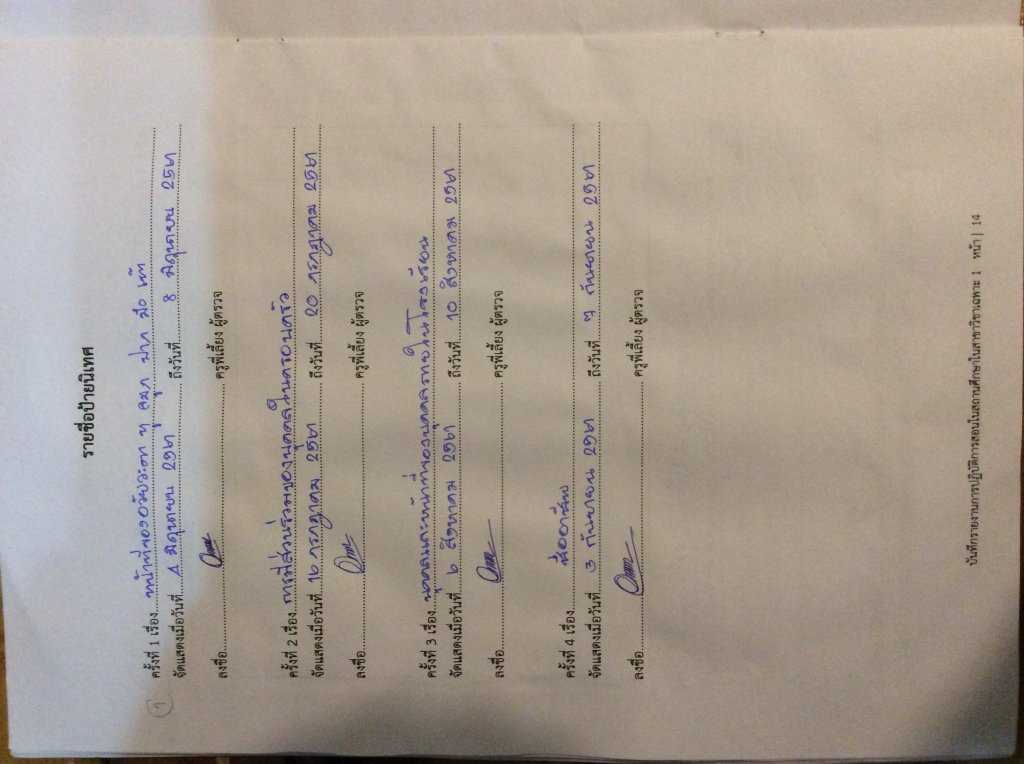 รายชื่อป้ายนิเทศ
ครั้งที่ 1 เรื่อง หน้าที่ของอวัยวะตา หู จมูก ปาก มือ เท้า
จัดแสดงเมื่อวันที่ 4 มิถุนายน 2561 ถึงวันที่ 8 มิถุนายน 2561
ลงชื่อ ครูพี่เลี้ยง ผู้ตรวจ
ครั้งที่ 2 เรื่อง การมีส่วนร่วมของบุคคลในครอบครัว
จัดแสดงเมื่อวันที่ 16 กรกฎาคม 2561 ถึงวันที่ 20 กรกฎาคม 2561
ลงชื่อ ครูพี่เลี้ยง ผู้ตรวจ
ครั้งที่ 3 เรื่อง บุคคลและหน้าที่ของบุคคลภายในโรงเรียน
จัดแสดงเมื่อวันที่ 6 สิงหาคม 2561 ถึงวันที่ 10 สิงหาคม 2561
ลงชื่อ ครูพี่เลี้ยง ผู้ตรวจ
ครั้งที่ 4 เรื่อง ชื่ออาชีพ
จัดแสดงเมื่อวันที่ 3 กันยายน 2561 ถึงวันที่ 7 กันยายน 2561
ลงชื่อ ครูพี่เลี้ยง ผู้ตรวจ
บันทึกรายงานการปฏิบัติการสอนในสถานศึกษาในสาขาวิชาเฉพาะ 1 หน้า | 14